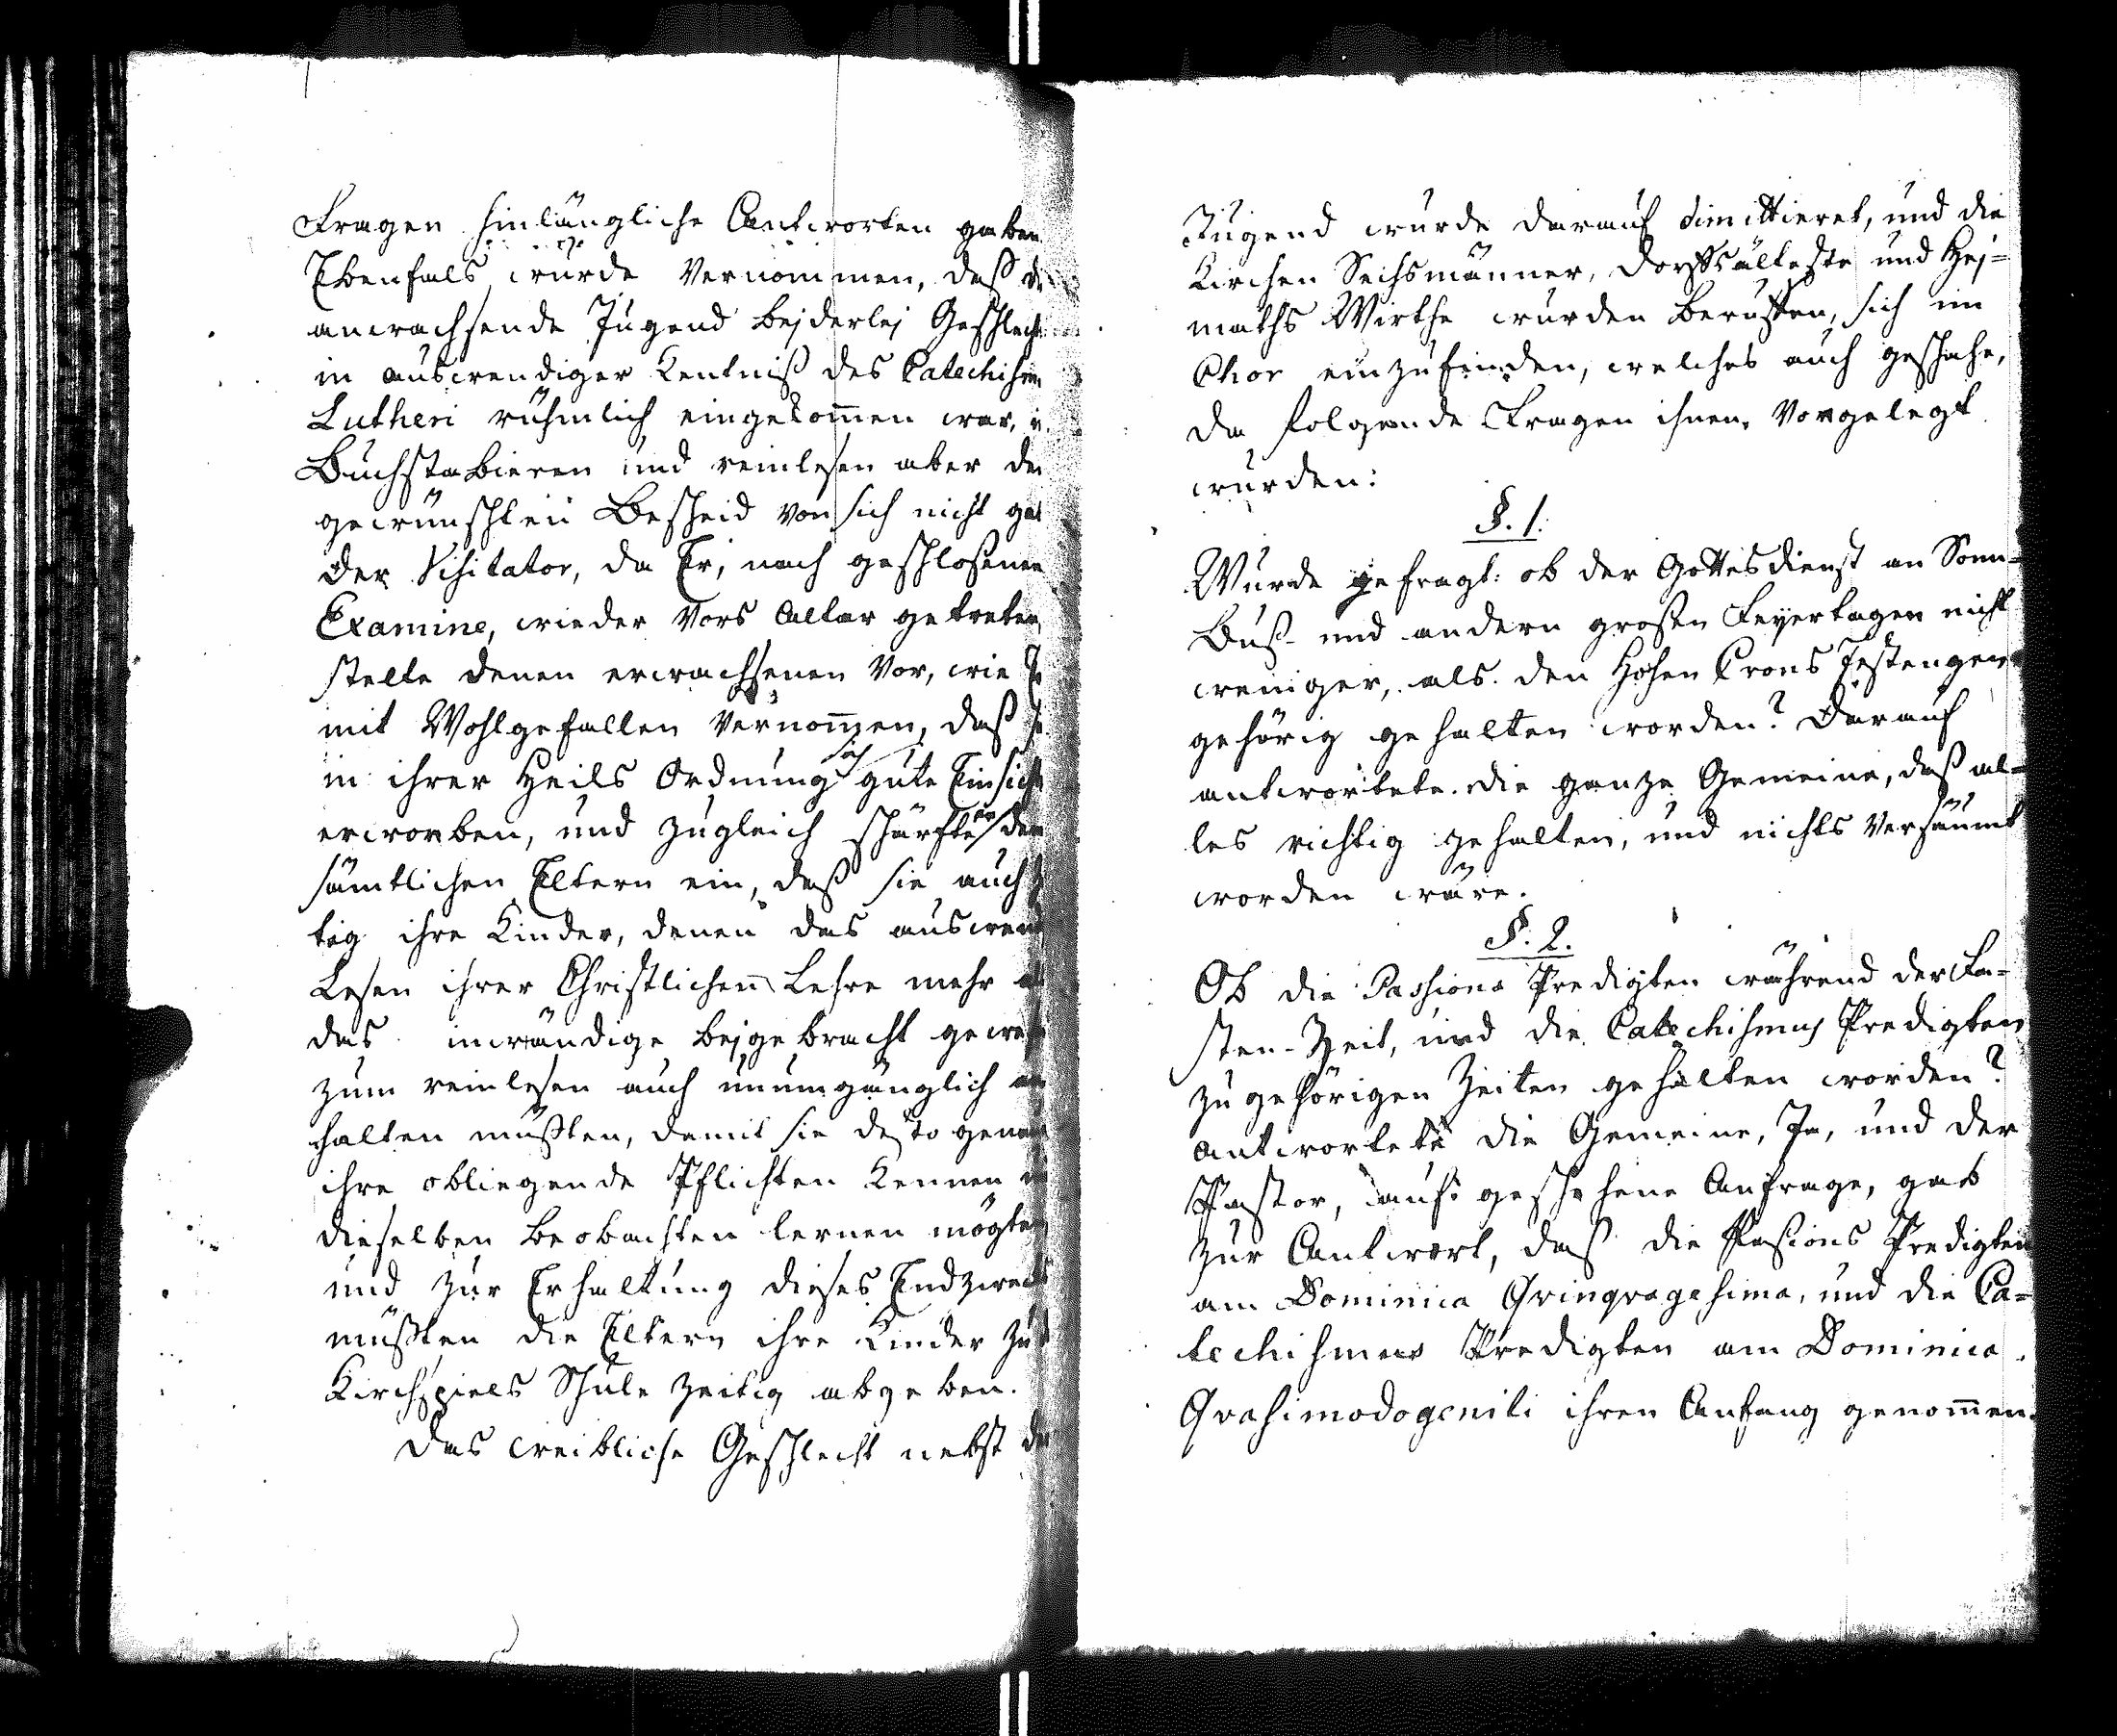 Fragen hinlängliche Antworten gaben
Ebenfals wurde vernommen, daß
anwachsende Jugend beijderleij Geschlech
in auswendiger Kentniß des Catechism
Lutheri rühmlich eingekom̄en war,
Buchstabieren und reinlesen aber de
gewünschten Bescheid von sich nicht gab
der Visitator, da Er, nach geschloßenen
Examine, wieder vors Altar getreten,
stelte denen erwachsenen vor, wie
mit Wohlgefallen vernom̄en, daß
in ihrer Heils Ordnung sich gute Einsicht
erworben, und zugleich schärfte er den
sämtlichen Eltern ein, daß sie auch
tig ihre Kinder, denen das auswend
Lesen ihrer Christlichen Lehre mehr als
das inwändige beijgebracht gewesen
zum reinlesen auch unumgänglich an
halten müßten, damit sie desto genauer
ihre obliegende Pflichten kennen
dieselben beobachten lernen mögten
und zur Erhaltung dieses Endzwecks
müßten die Eltern ihre Kinder zur
Kirchspiels Schule zeitig abgeben.
Das weibliche Geschlecht nebst der
Jugend wurde darauf dimittieret, und die
Kirchen Sechsmänner, Dorfsälteste und Heij=
maths Wirthe wurden beruffen, sich im
Chor einzufinden, welches auch geschahe,
da folgende Fragen ihnen vorgelegt
wurden:
§. 1.
Wurde gefragt: ob der Gottesdienst an Sonn=
Buß- und andern großen Feyertagen nicht
weniger, als den Hohen Crons Festengen
gehörig gehalten worden? Darauf
antwortete die ganze Gemeine, daß al=
les richtig gehalten, und nichts versäumt
worden wäre.
§. 2.
Ob die Passions Predigten während der Fa=
sten-Zeit, und die Catechismus Predigten
zu gehörigen Zeiten gehalten worden?
antwortete die Gemeine, Ja, und der
Pastor, auf geschehene Anfrage, gab
zur Antwort, daß die Paßions Predigten
am Dominica Qvinqvagesima, und die Ca=
techismus Predigten am Dominica
Qvasimodogeniti ihren Anfang genom̄en.